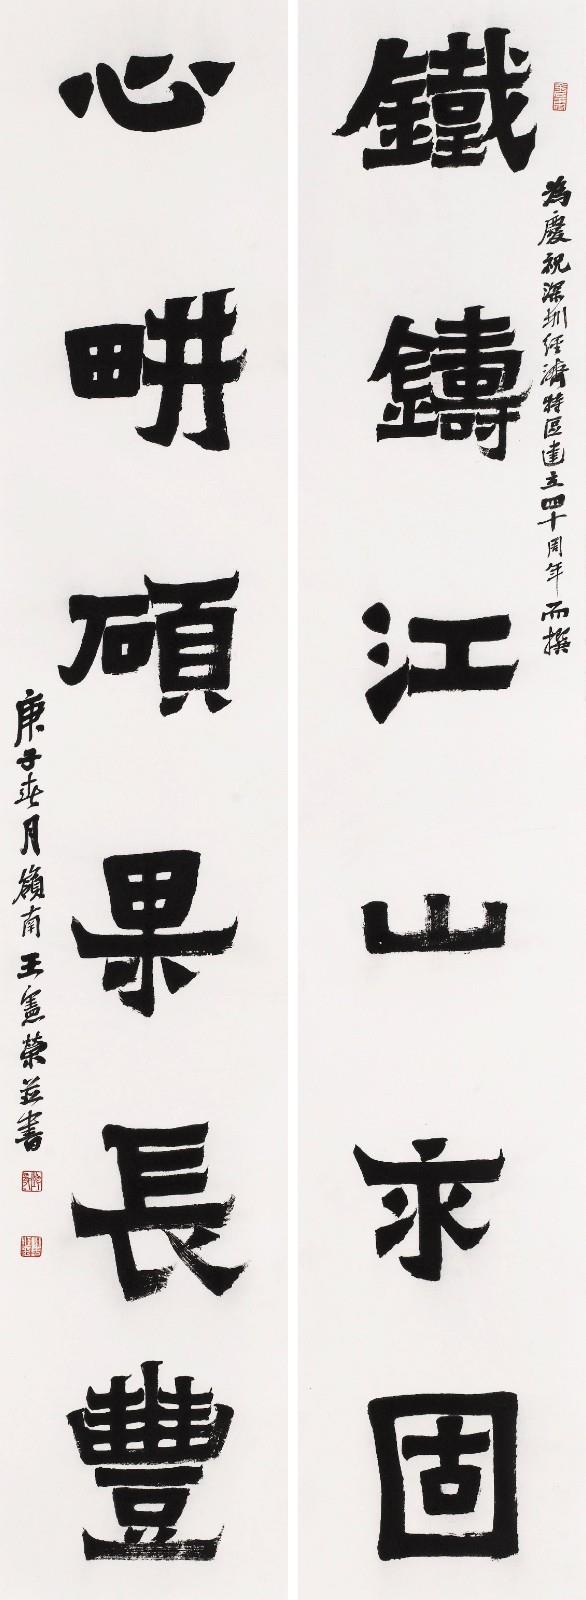 為慶祝深圳經濟特區建立四十周年而撰
鐵鑄江山永固
心畊碩果長豐
庚子春月嶺南王憲榮並書